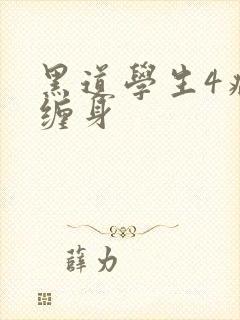 黑道學生4
缠身
薛力